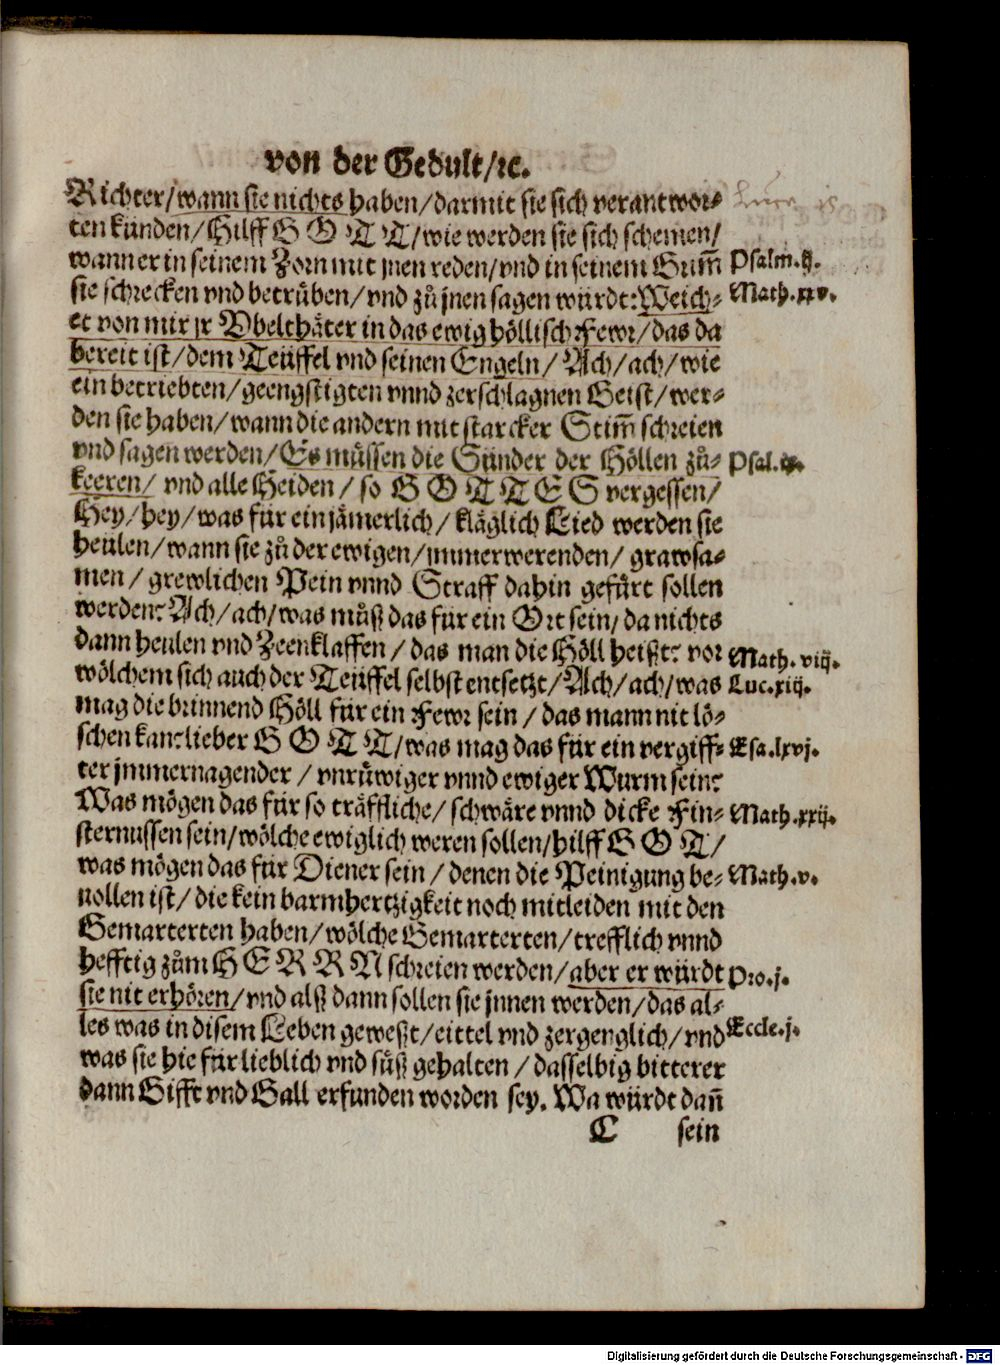 von der Gedult/ꝛc.
Richter/wann sie nichts haben/darmit sie sich verantwor⸗
ten künden/Hilff GOTT/wie werden sie sich schemen/
wann er in seinem Zorn mit jnen reden/vnd in seinem Grim̃ Psalm.ij.
sie schrecken vnd betrüben/vnd zů jnen sagen würdt: Weich⸗ Math.xxv.
et von mir jr Vbelthäter in das ewig höllisch Fewr/das da
bereit ist/dem Teüffel vnd seinen Engeln/Ach/ach/wie
ein betriebten/geengstigten vnnd zerschlagnen Geist/wer⸗
den sie haben/wann die andern mit starcker Stim̃ schreien
vnd sagen werden/Es müssen die Sünder der Höllen zů⸗ Psal.ix.
keeren/vnd alle Heiden/so GOTTES vergessen/
Hey/hey/was für ein jämerlich/kläglich Lied werden sie
heulen/wann sie zů der ewigen/jmmerwerenden/grawsa⸗
men/grewlichen Pein vnnd Straff dahin gefürt sollen
werden: Ach/ach/was můß das für ein Ort sein/da nichts
dann heulen vnd Zeenklaffen/das man die Höll heißt: vor Math.viij.
wölchem sich auch der Teüffel selbst entsetzt/Ach/ach/was Luc.xiij.
mag die brinnend Höll für ein Fewr sein/das mann nit lö⸗
schen kan: lieber GOTT/was mag das für ein vergiff⸗ Esa.lxvj.
ter jmmernagender/vnrüwiger vnnd ewiger Wurm sein:
Was mögen das für so träffliche/schwäre vnnd dicke Fin⸗ Math.xxij.
sternussen sein/wölche ewiglich weren sollen/hilff GOT/
was mögen das für Diener sein/denen die Peinigung be⸗ Math.v.
uollen ist/die kein barmhertzigkeit noch mitleiden mit den
Gemarterten haben/wölche Gemarterten/trefflich vnnd
hefftig zům HERRN schreien werden/aber er würdt Pro.j.
sie nit erhören/vnd alß dann sollen sie jnnen werden/das al⸗
les was in disem Leben geweßt/eittel vnd zergenglich/vnd Eccle.j.
was sie hie für lieblich vnd süß gehalten/dasselbig bitterer
dann Gifft vnd Gall erfunden worden sey. Wa würdt dañ
C sein
Digitalisierung gefördert durch die Deutsche Forschungsgemeinschaft - DFG